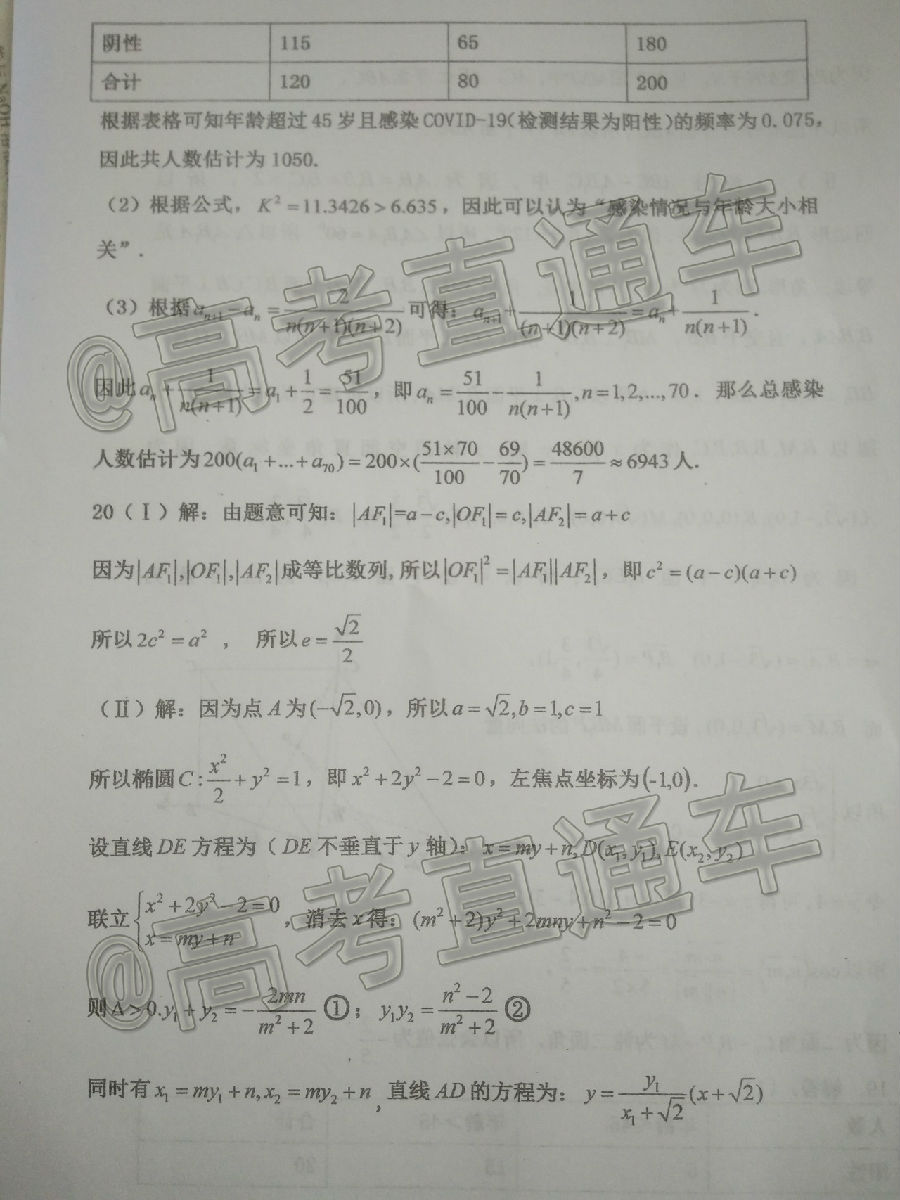 阴性 115 65 180
合计 120 80 200
根据表格可知年龄超过 45 岁且感染 COVID-19(检测结果为阳性)的频率为 0.075,
因此共人数估计为 1050.
(2)根据公式, K² =11.3426 > 6.635, 因此可以认为“感染情况与年龄大小相
关”.
(3)根据 aₙ₊₁ - aₙ = 2/(n(n+1)(n+2)) 可得: aₙ₊₁ + 1/((n+1)(n+2)) = aₙ + 1/(n(n+1)).
因此 aₙ + 1/(n(n+1)) = a₁ + 1/2 = 51/100, 即 aₙ = 51/100 - 1/(n(n+1)), n=1,2,...,70. 那么总感染
人数估计为 200(a₁ +...+ a₇₀) = 200×(51×70/100 - 69/70) = 48600/7 ≈ 6943 人.
20(Ⅰ)解: 由题意可知: |AF₁|=a-c,|OF₁|=c,|AF₂|=a+c
因为|AF₁|,|OF₁|,|AF₂|成等比数列, 所以|OF₁|² =|AF₁||AF₂|, 即 c² =(a-c)(a+c)
所以 2c² = a² , 所以 e = √2/2
(Ⅱ)解: 因为点 A 为(-√2,0), 所以 a=√2,b=1,c=1
所以椭圆 C: x²/2 + y² =1, 即 x² + 2y² - 2 = 0, 左焦点坐标为(-1,0).
设直线 DE 方程为(DE 不垂直于 y 轴): x = my + n, D(x₁, y₁), E(x₂, y₂)
联立{x² + 2y² - 2 = 0 x = my + n , 消去 x 得: (m² + 2)y² + 2mny + n² - 2 = 0
则 Δ > 0. y₁ + y₂ = - 2mn/(m² + 2) ①; y₁y₂ = (n² - 2)/(m² + 2) ②
同时有 x₁ = my₁ + n, x₂ = my₂ + n , 直线 AD 的方程为: y = y₁/(x₁ + √2) (x + √2)
@高考直通车
@高考直通车